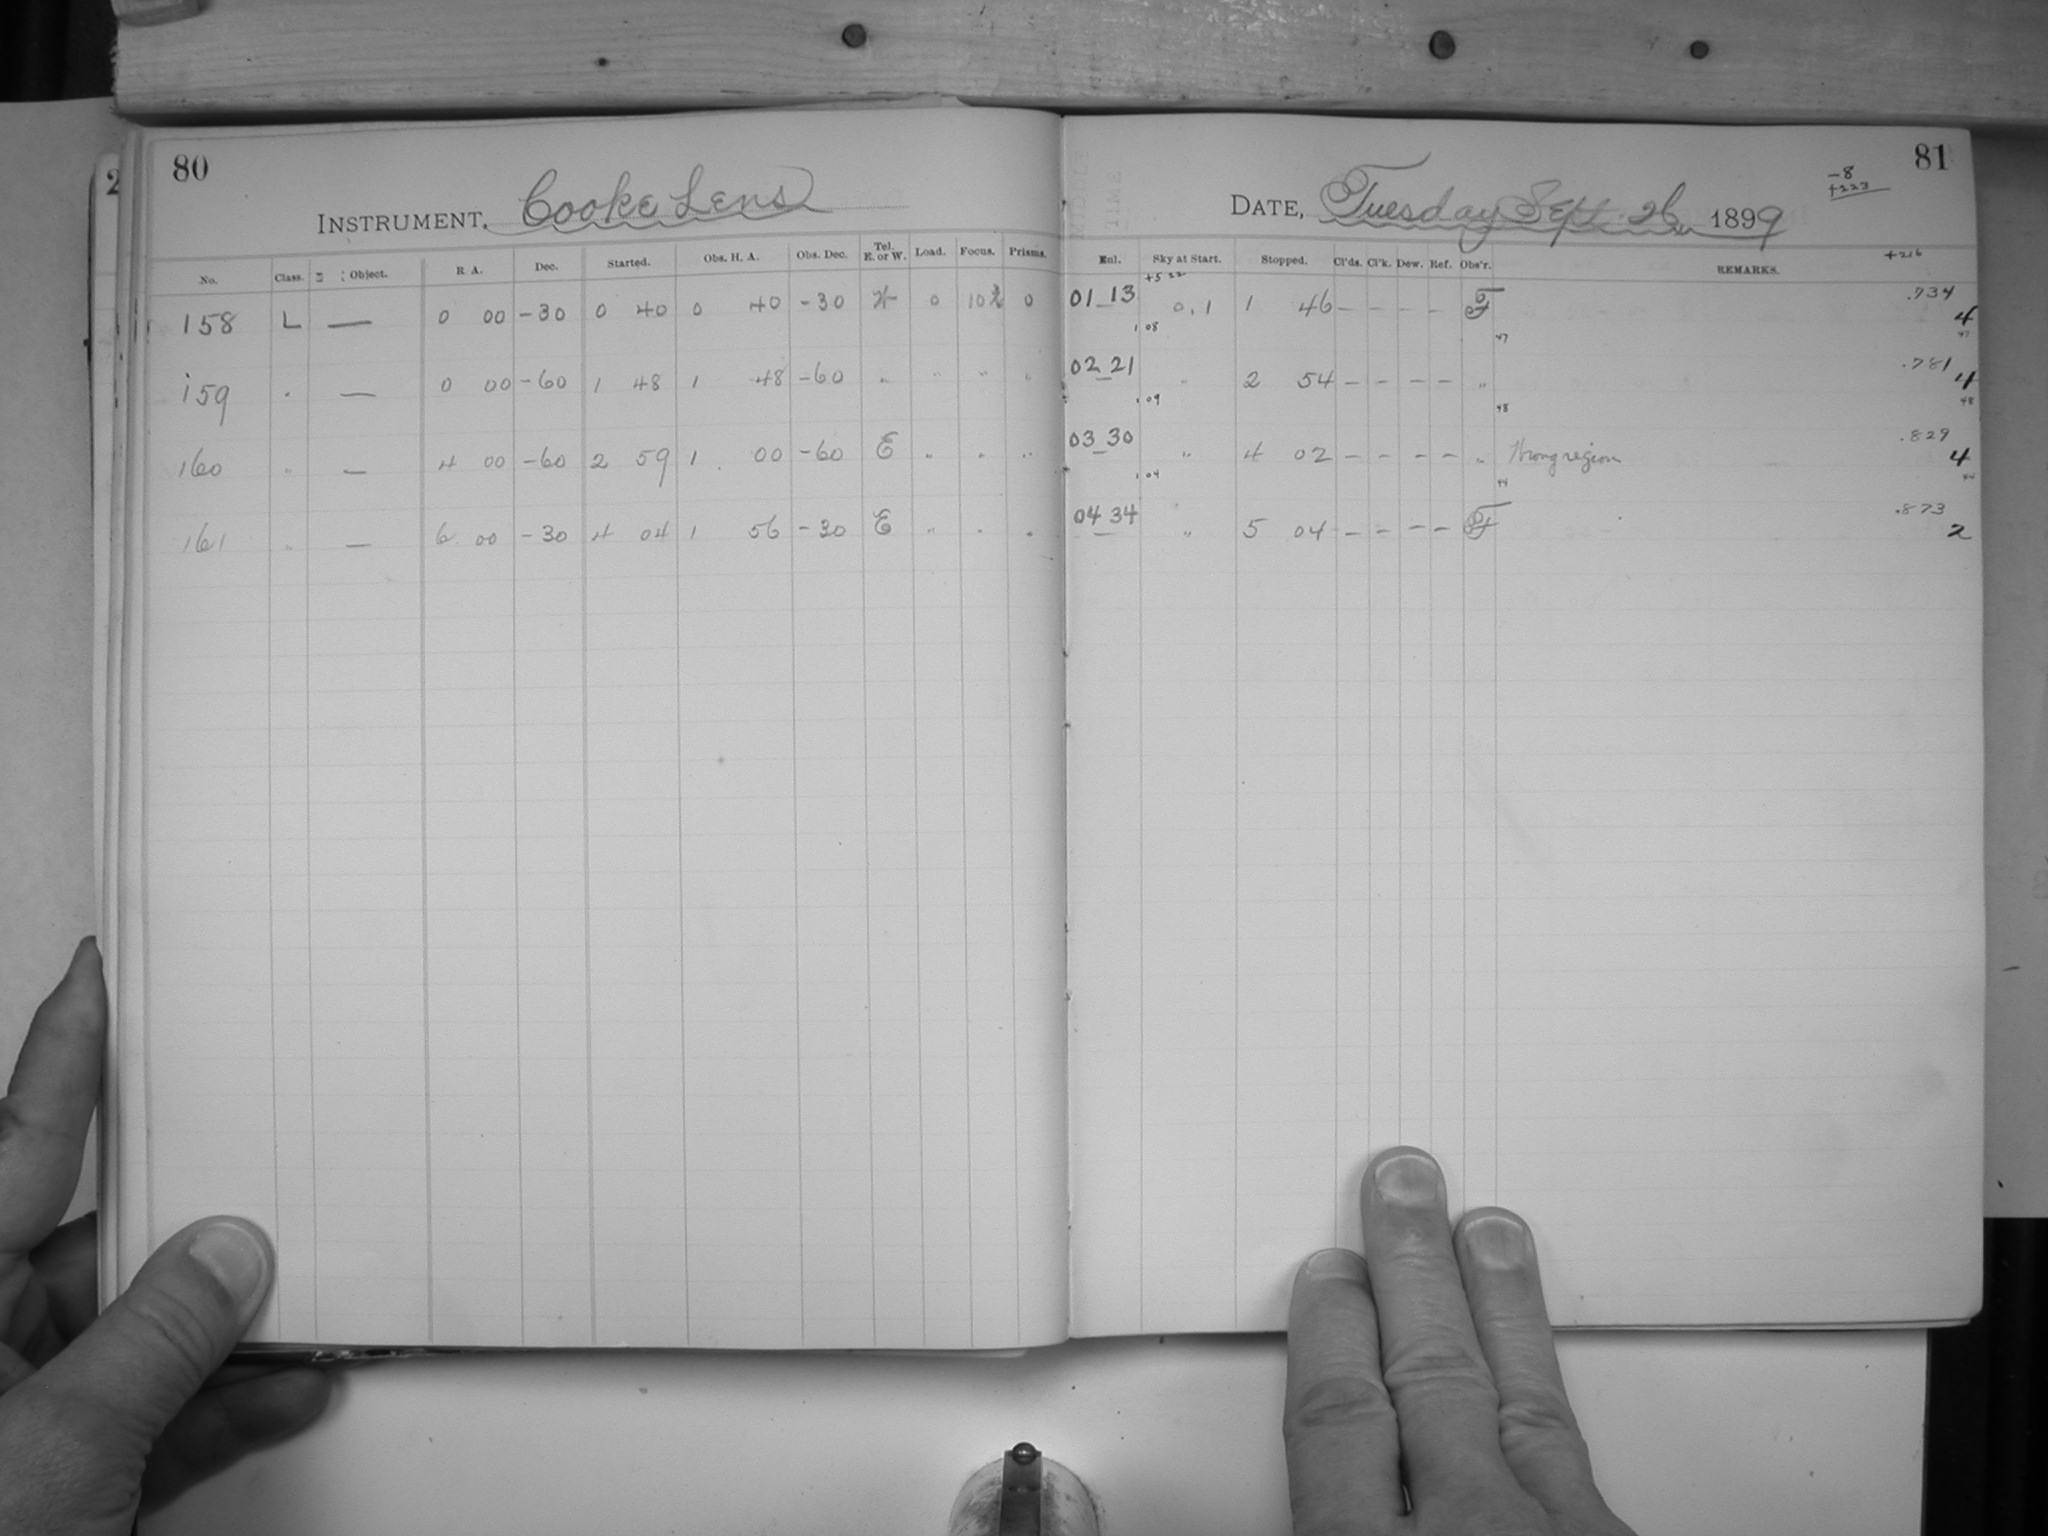 80
INSTRUMENT, Cooke Lens
No. Class. Object. R A. Dec. Started. Obs. H. A. Obs. Dec. Tel. E. or W. Load. Focus. Prisms.
158 L — 0 00 -30 0 40 0 40 -30 W 0 10 0
159 " — 0 00 -60 1 48 1 48 -60 " " " "
160 " — 4 00 -60 2 59 1 00 -60 E " " "
161 " — 6 00 -30 4 04 1 56 -30 E " " "
81
-8
+223
DATE, Tuesday Sept. 26, 1899
+216
Enl. Sky at Start. Stopped. Cl'ds. Cl'k. Dew. Ref. Obs'r. REMARKS.
+5 22
01 13 0.1 1 46 — — — — F .734 4
1 08 47 47
02 21 " 2 54 — — — — " .781 4
1 09 48 48
03 30 " 4 02 — — — — " Wrong region .829 4
1 04 44 44
04 34 " 5 04 — — — — F .873 2
2